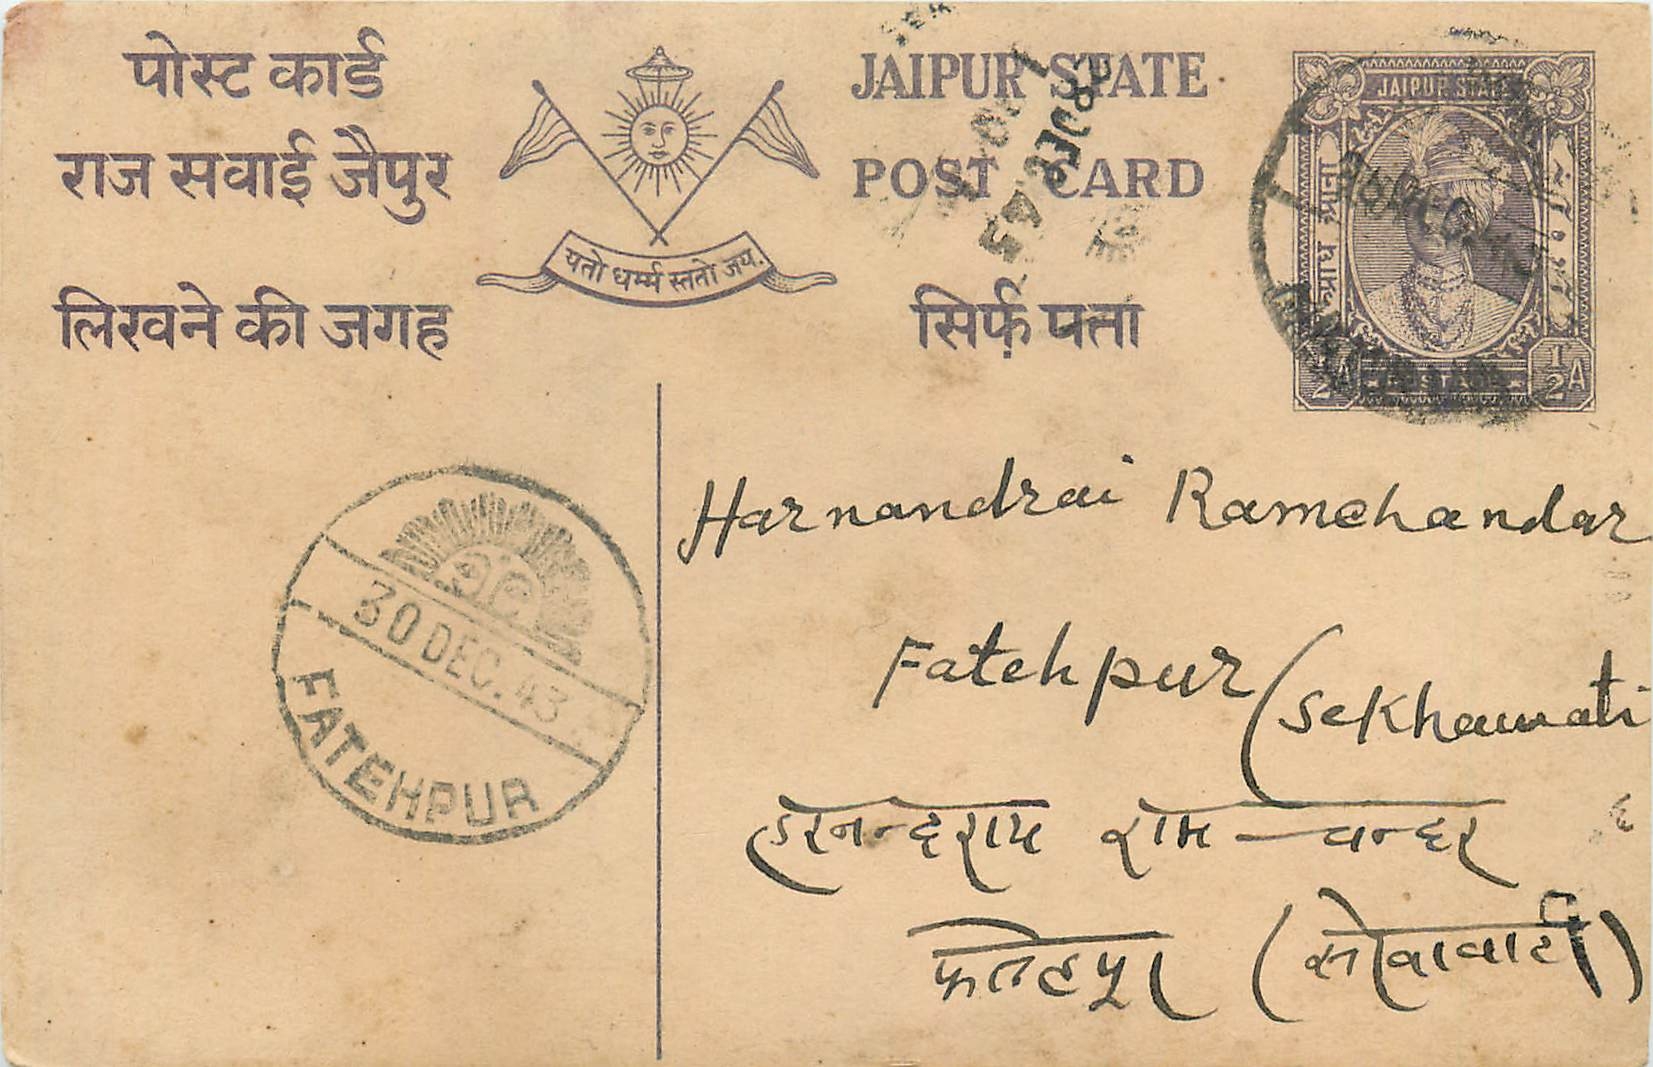 पोस्ट कार्ड
राज सवाई जैपुर
लिखने की जगह
यतो धर्म्म स्ततो जय.
JAIPUR STATE
POST CARD
सिर्फ़ पता
JAIPUR STATE
POSTAGE
1/2 A
30 DEC. 43
FATEHPUR
Harnandrai Ramchandar
Fatehpur (Sekhawati
हरनन्दराय रामचन्दर
फतेहपूर (सेखावाटी)